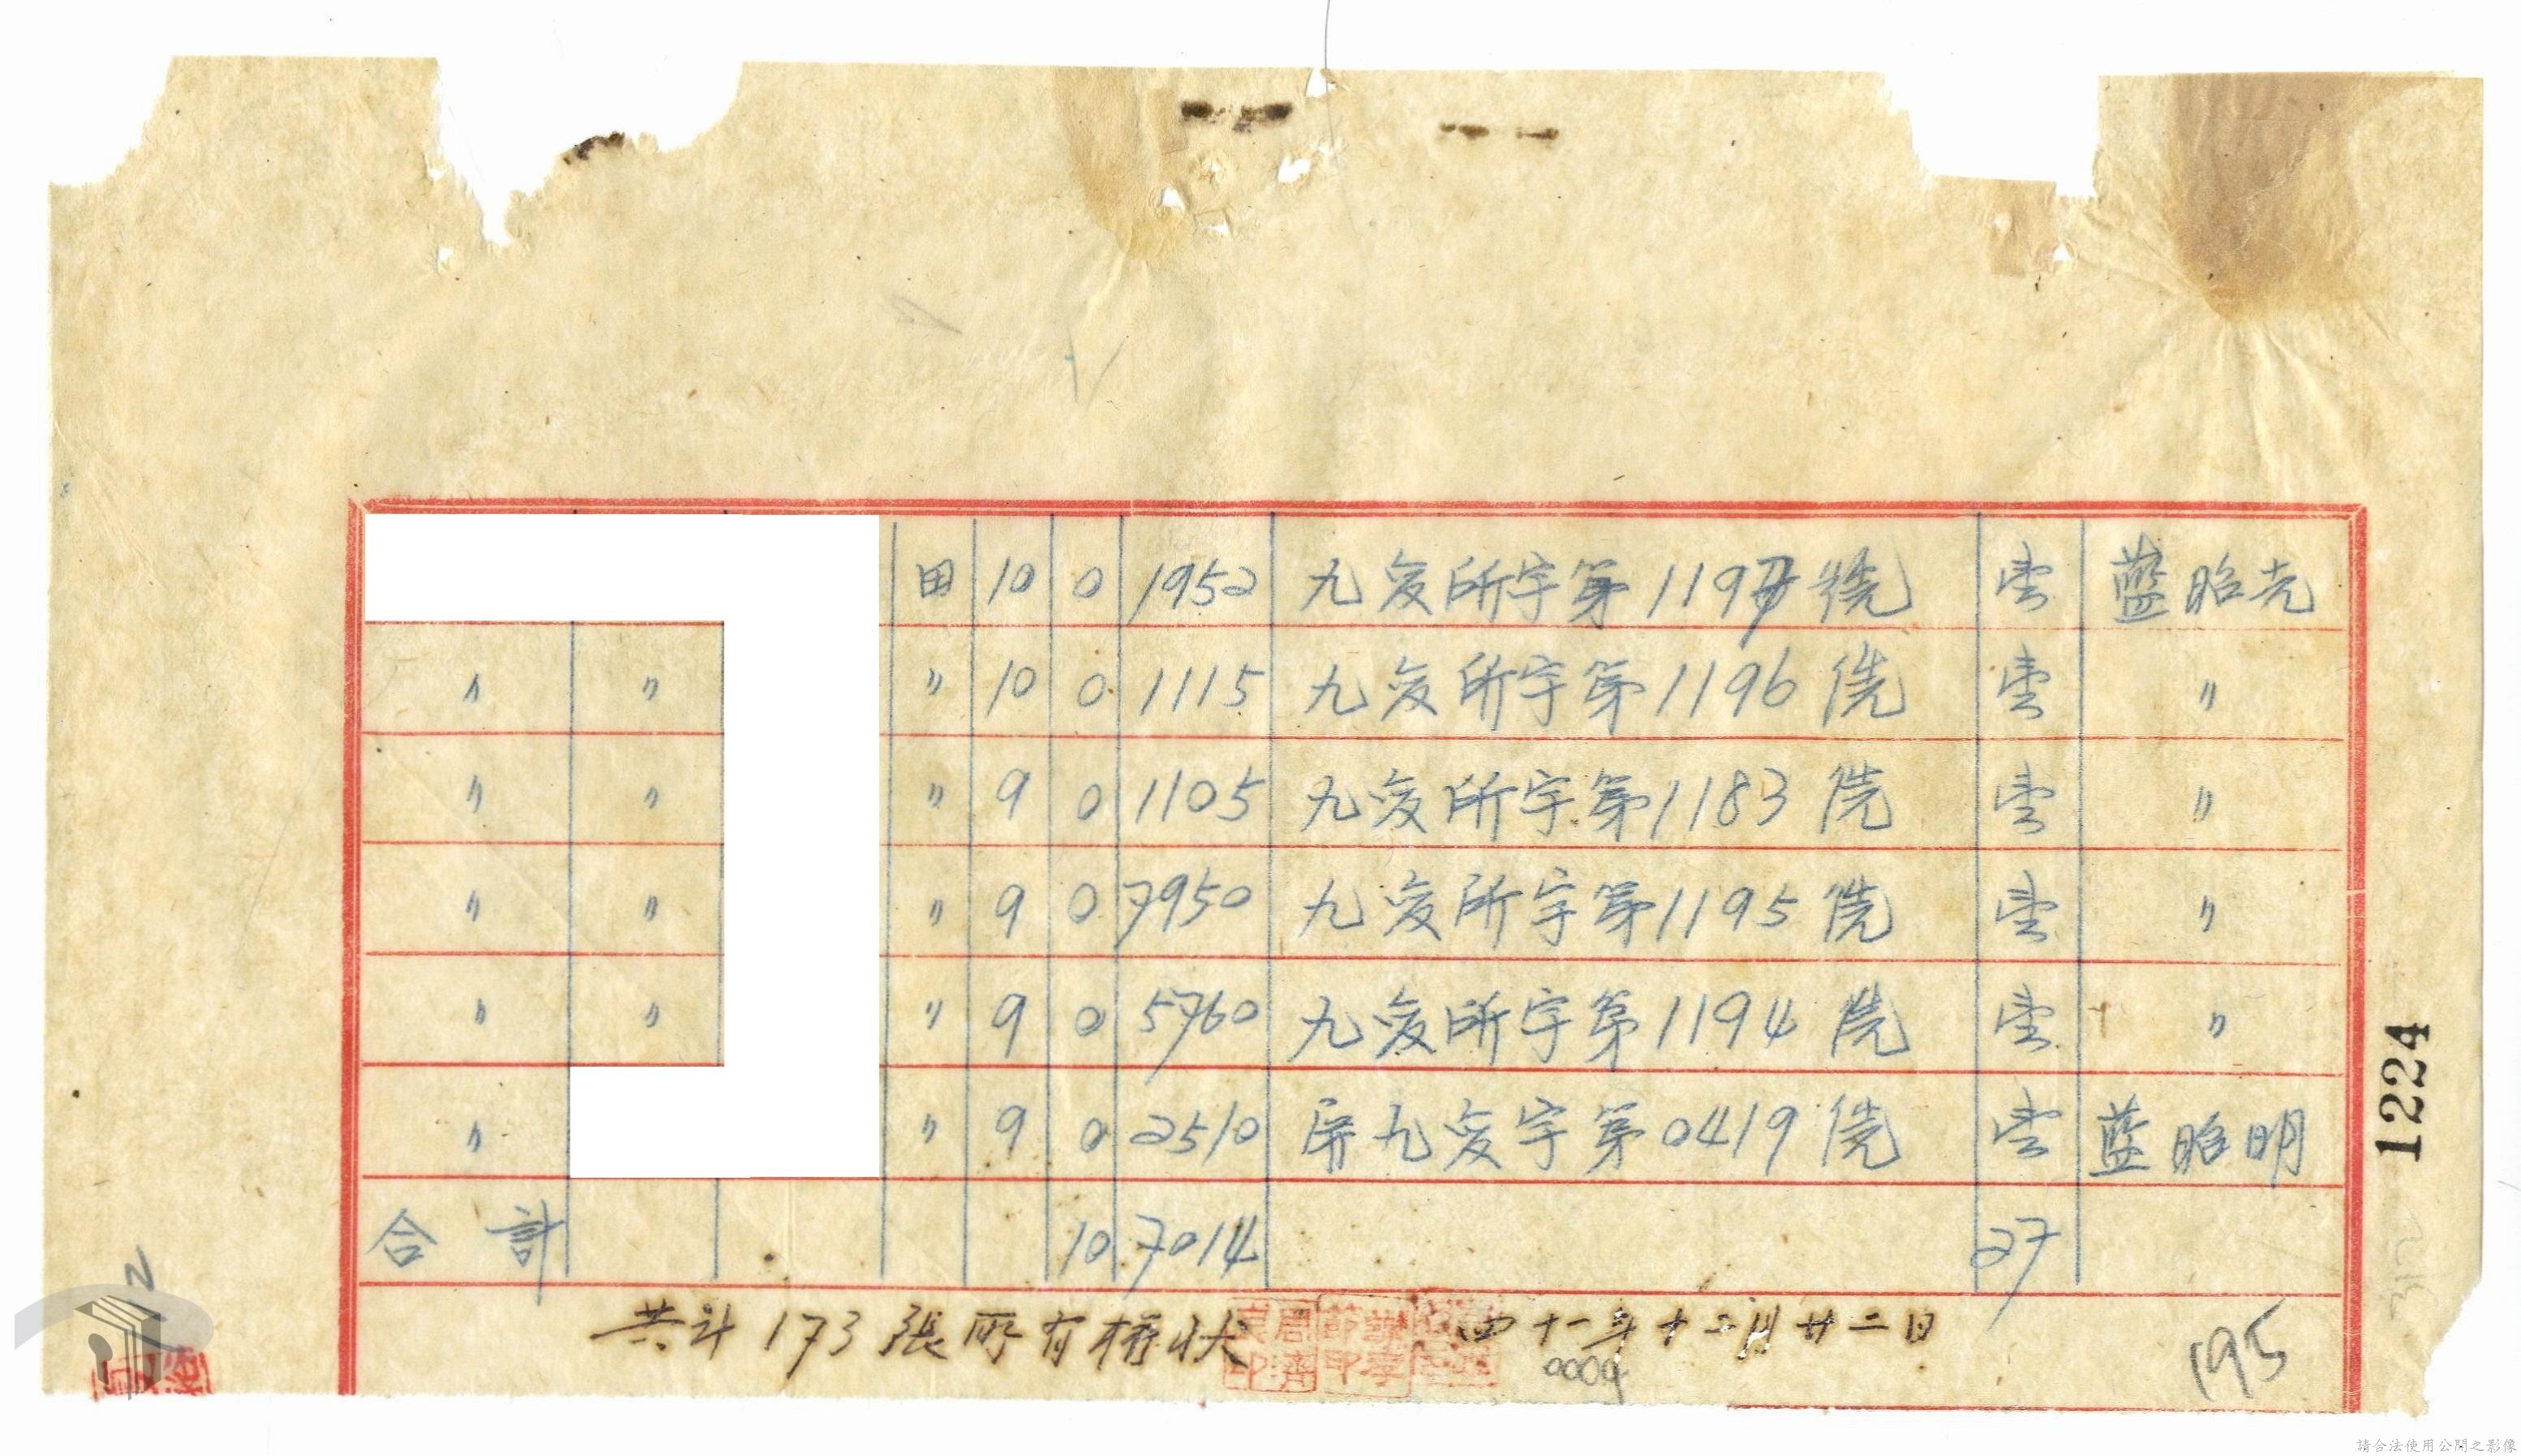 田 10 0 1952 九 所字第 119 號 壹 藍昭光
〃 〃 〃 10 0 1115 九 所字第1196號 壹 〃
〃 〃 〃 9 0 1105 九 所字第1183號 壹 〃
〃 〃 〃 9 0 7950 九 所字第1195號 壹 〃
〃 〃 〃 9 0 5760 九 所字第1194號 壹 〃
〃 〃 9 0 2510 屏九 字第0419號 壹 藍昭明
合計 10 7014 27
共計173張所有權狀 四十一年十二月廿二日
195
1224
請合法使用公開之影像